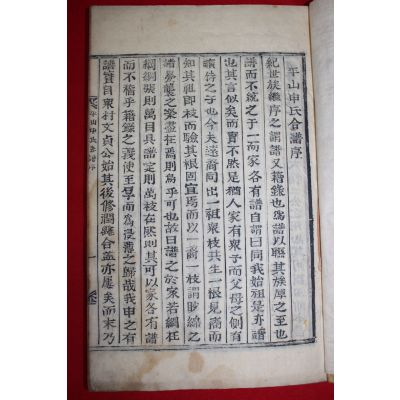 平山申氏合譜序
紀世族繼序之謂譜又籍錄也爲譜以聯其族厚之至也
譜而不統之于一而家各有譜自謂曰同我始祖是亦譜
也其言似矣而實不然是猶人家有衆子而父母之側有
侍之子也今夫遠裔同出一祖衆枝共生一根見裔而
知其祖即枝而驗其根固宜焉而以一裔一枝謂
譜 之榮盡在焉則烏乎可也故曰譜之於家若綱在
綱綱張則萬目具譜定則萬枝在然則其可以家各有譜
而不稽乎籍錄之義使至厚而爲 之歸哉我申之有
譜實自象村文貞公始其後修潤離合盖亦屢矣而末乃
平山申氏合譜序
一